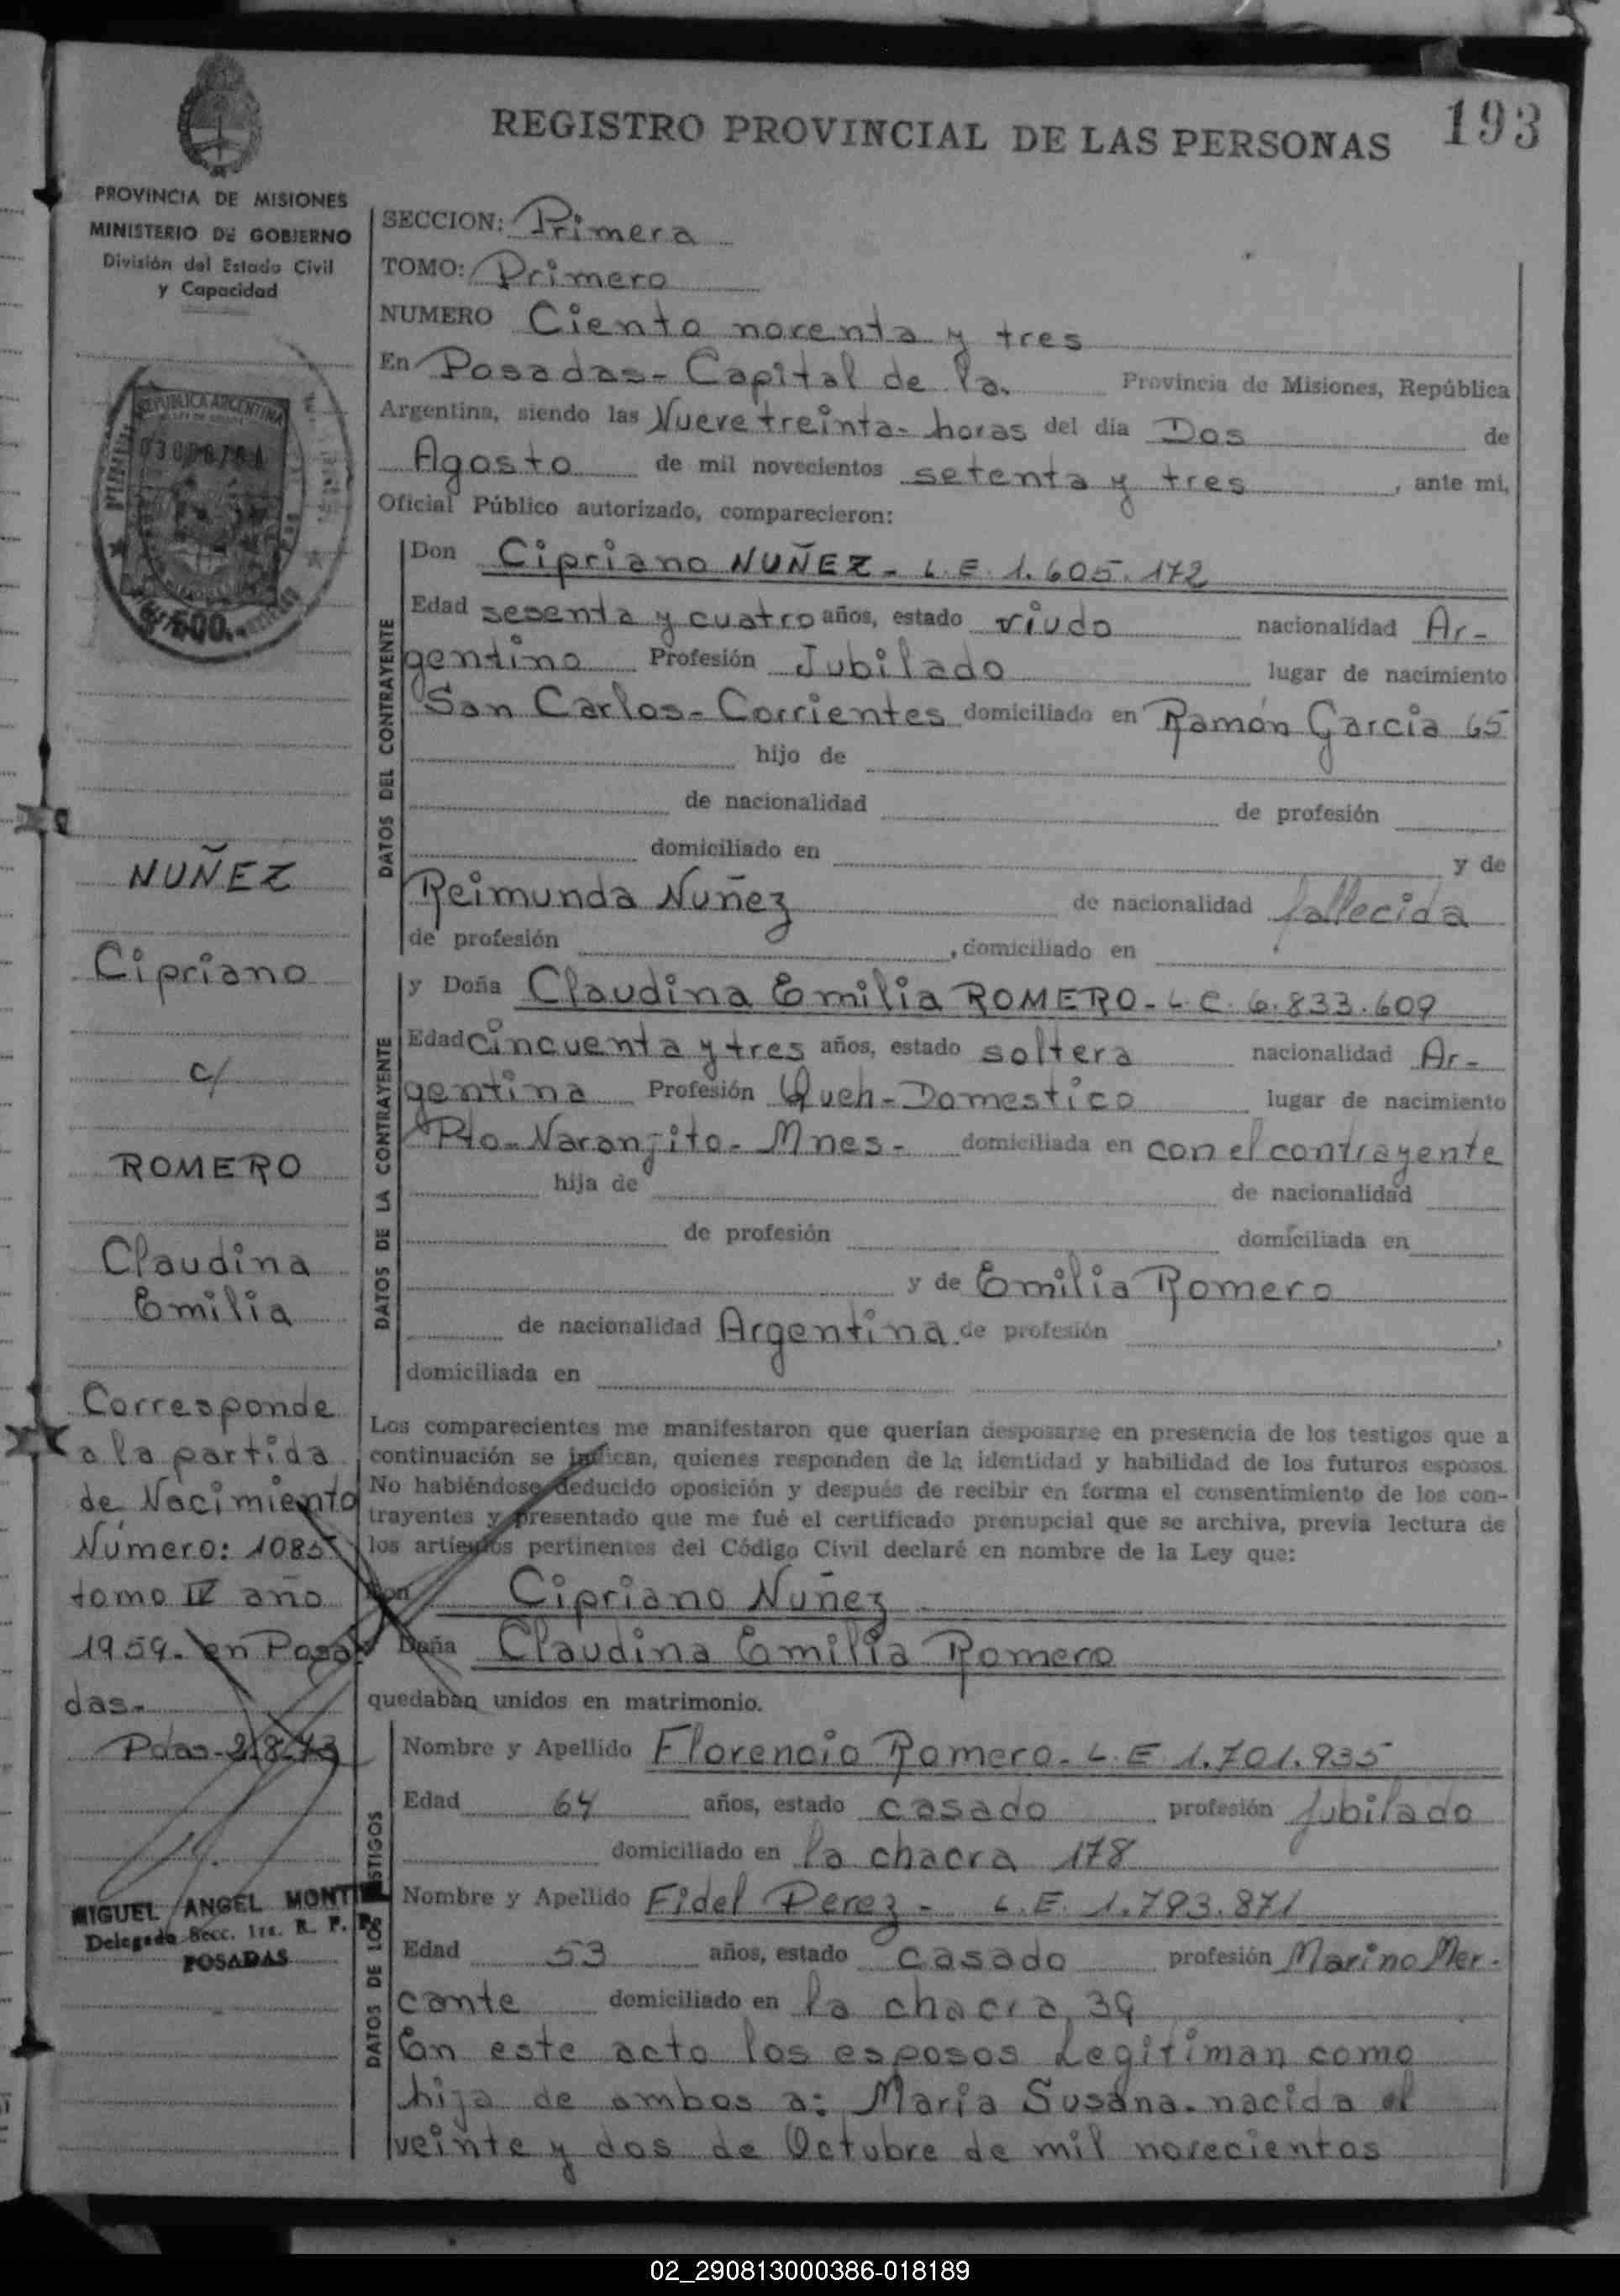 REGISTRO PROVINCIAL DE LAS PERSONAS 193
PROVINCIA DE MISIONES
MINISTERIO DE GOBIERNO
División del Estado Civil
y Capacidad
REPUBLICA ARGENTINA
500.-
NUÑEZ
Cipriano
c/
ROMERO
Claudina
Emilia
Corresponde
a la partida
de Nacimiento
Número: 1085
tomo IV año
1959. en Posa
das-
Pdas-2/8/73
MIGUEL ANGEL
Delegado Secc. 1ra. R. P. P.
POSADAS
SECCION: Primera
TOMO: Primero
NUMERO Ciento noventa y tres
En Posadas- Capital de la. Provincia de Misiones, República
Argentina, siendo las Nueve treinta- horas del día Dos de
Agosto de mil novecientos setenta y tres, ante mi,
Oficial Público autorizado, comparecieron:
DATOS DEL CONTRAYENTE
Don Cipriano NUÑEZ - L.E. 1.605.172
Edad sesenta y cuatro años, estado viudo nacionalidad Ar-
gentino Profesión Jubilado lugar de nacimiento
San Carlos- Corrientes domiciliado en Ramón Garcia 65
hijo de
de nacionalidad de profesión
domiciliado en y de
Reimunda Nuñez de nacionalidad fallecida
de profesión , domiciliado en
DATOS DE LA CONTRAYENTE
y Doña Claudina Emilia ROMERO- L.C. 6.833.609
Edad cincuenta y tres años, estado soltera nacionalidad Ar-
gentina Profesión Queh-Domestico lugar de nacimiento
Pto-Naranjito- Mnes- domiciliada en con el contrayente
hija de de nacionalidad
de profesión domiciliada en
y de Emilia Romero
de nacionalidad Argentina. de profesión ,
domiciliada en
Los comparecientes me manifestaron que querían desposarse en presencia de los testigos que a
continuación se indican, quienes responden de la identidad y habilidad de los futuros esposos.
No habiéndose deducido oposición y después de recibir en forma el consentimiento de los con-
trayentes y presentado que me fué el certificado prenupcial que se archiva, previa lectura de
los artículos pertinentes del Código Civil declaré en nombre de la Ley que:
Don Cipriano Nuñez
Doña Claudina Emilia Romero
quedaban unidos en matrimonio.
DATOS DE LOS TESTIGOS
Nombre y Apellido Florencio Romero- L.E 1.701.935
Edad 64 años, estado casado profesión jubilado
domiciliado en la chacra 178
Nombre y Apellido Fidel Perez- L.E. 1.793.871
Edad 53 años, estado casado profesión Marino Mer-
cante domiciliado en la chacra 39
En este acto los esposos Legitiman como
hija de ambos a: Maria Susana. nacida el
veinte y dos de Octubre de mil novecientos
02_290813000386-018189